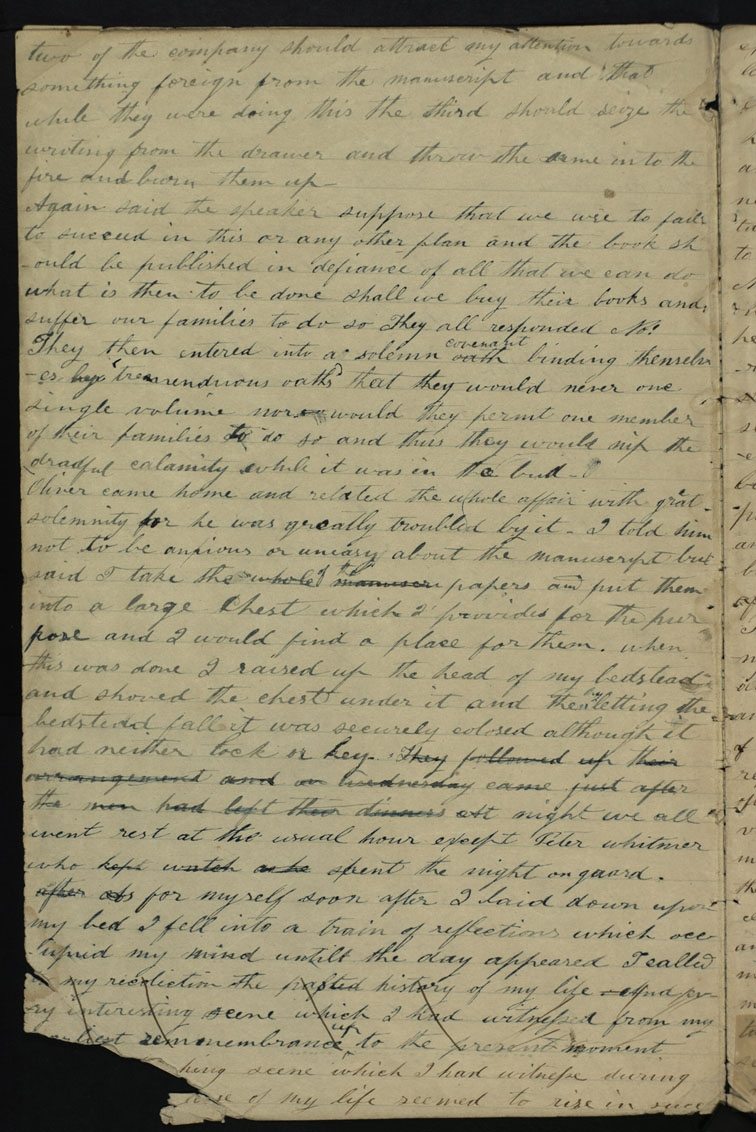 two of the company should attract my attention towards
something foreign from the manuscript and that
while they were doing this the third should seize the
writing from the drawer and throw the same into the
fire and burn them up—
Again said the speaker suppose that we were to fail
to succeed in this or any other plan and the book sh
-ould be published in defiance of all that we can do
what is then to be done shall we buy their books and
suffer our families to do so They all responded No!
They then intered into a solemn oath covenant binding themselv
-es by tremenduous oaths that they would never one
single volume nor would they permit one member
of their families to do so and thus they would nip the
dradful calamity while it was in the bud—
Oliver came home and related the whole affair with grat
solemnity for he was greatly troubled by it— I told him
not to be anxious or uneasy about the manuscript but
said I take the whole of the manuscri papers and put them
into a large Chest which I provided for the pur
pose and I would find a place for them. when
this was done I raised up the head of my bedstead
and shoved the chest under it and then letting the
bedstedd fall it was securely colosed although it
had neither lock or key. They followed up their
arrangement and on Wednesday came just after
the men had left their dinners At night we all
went rest at the usual hour except Peter whitmer
who kept watch as he spent the night on guard.
after as for myself soon after I laid down upon
my bed I fell into a train of reflections which occ
upied my mind untill the day appeared I called
my recolection the pasted history of my life and
ry interesting scene which I had witnessed from my
remmembrance up to the present moment
hing scene which I had witnesse during
of my life seemed to rise in